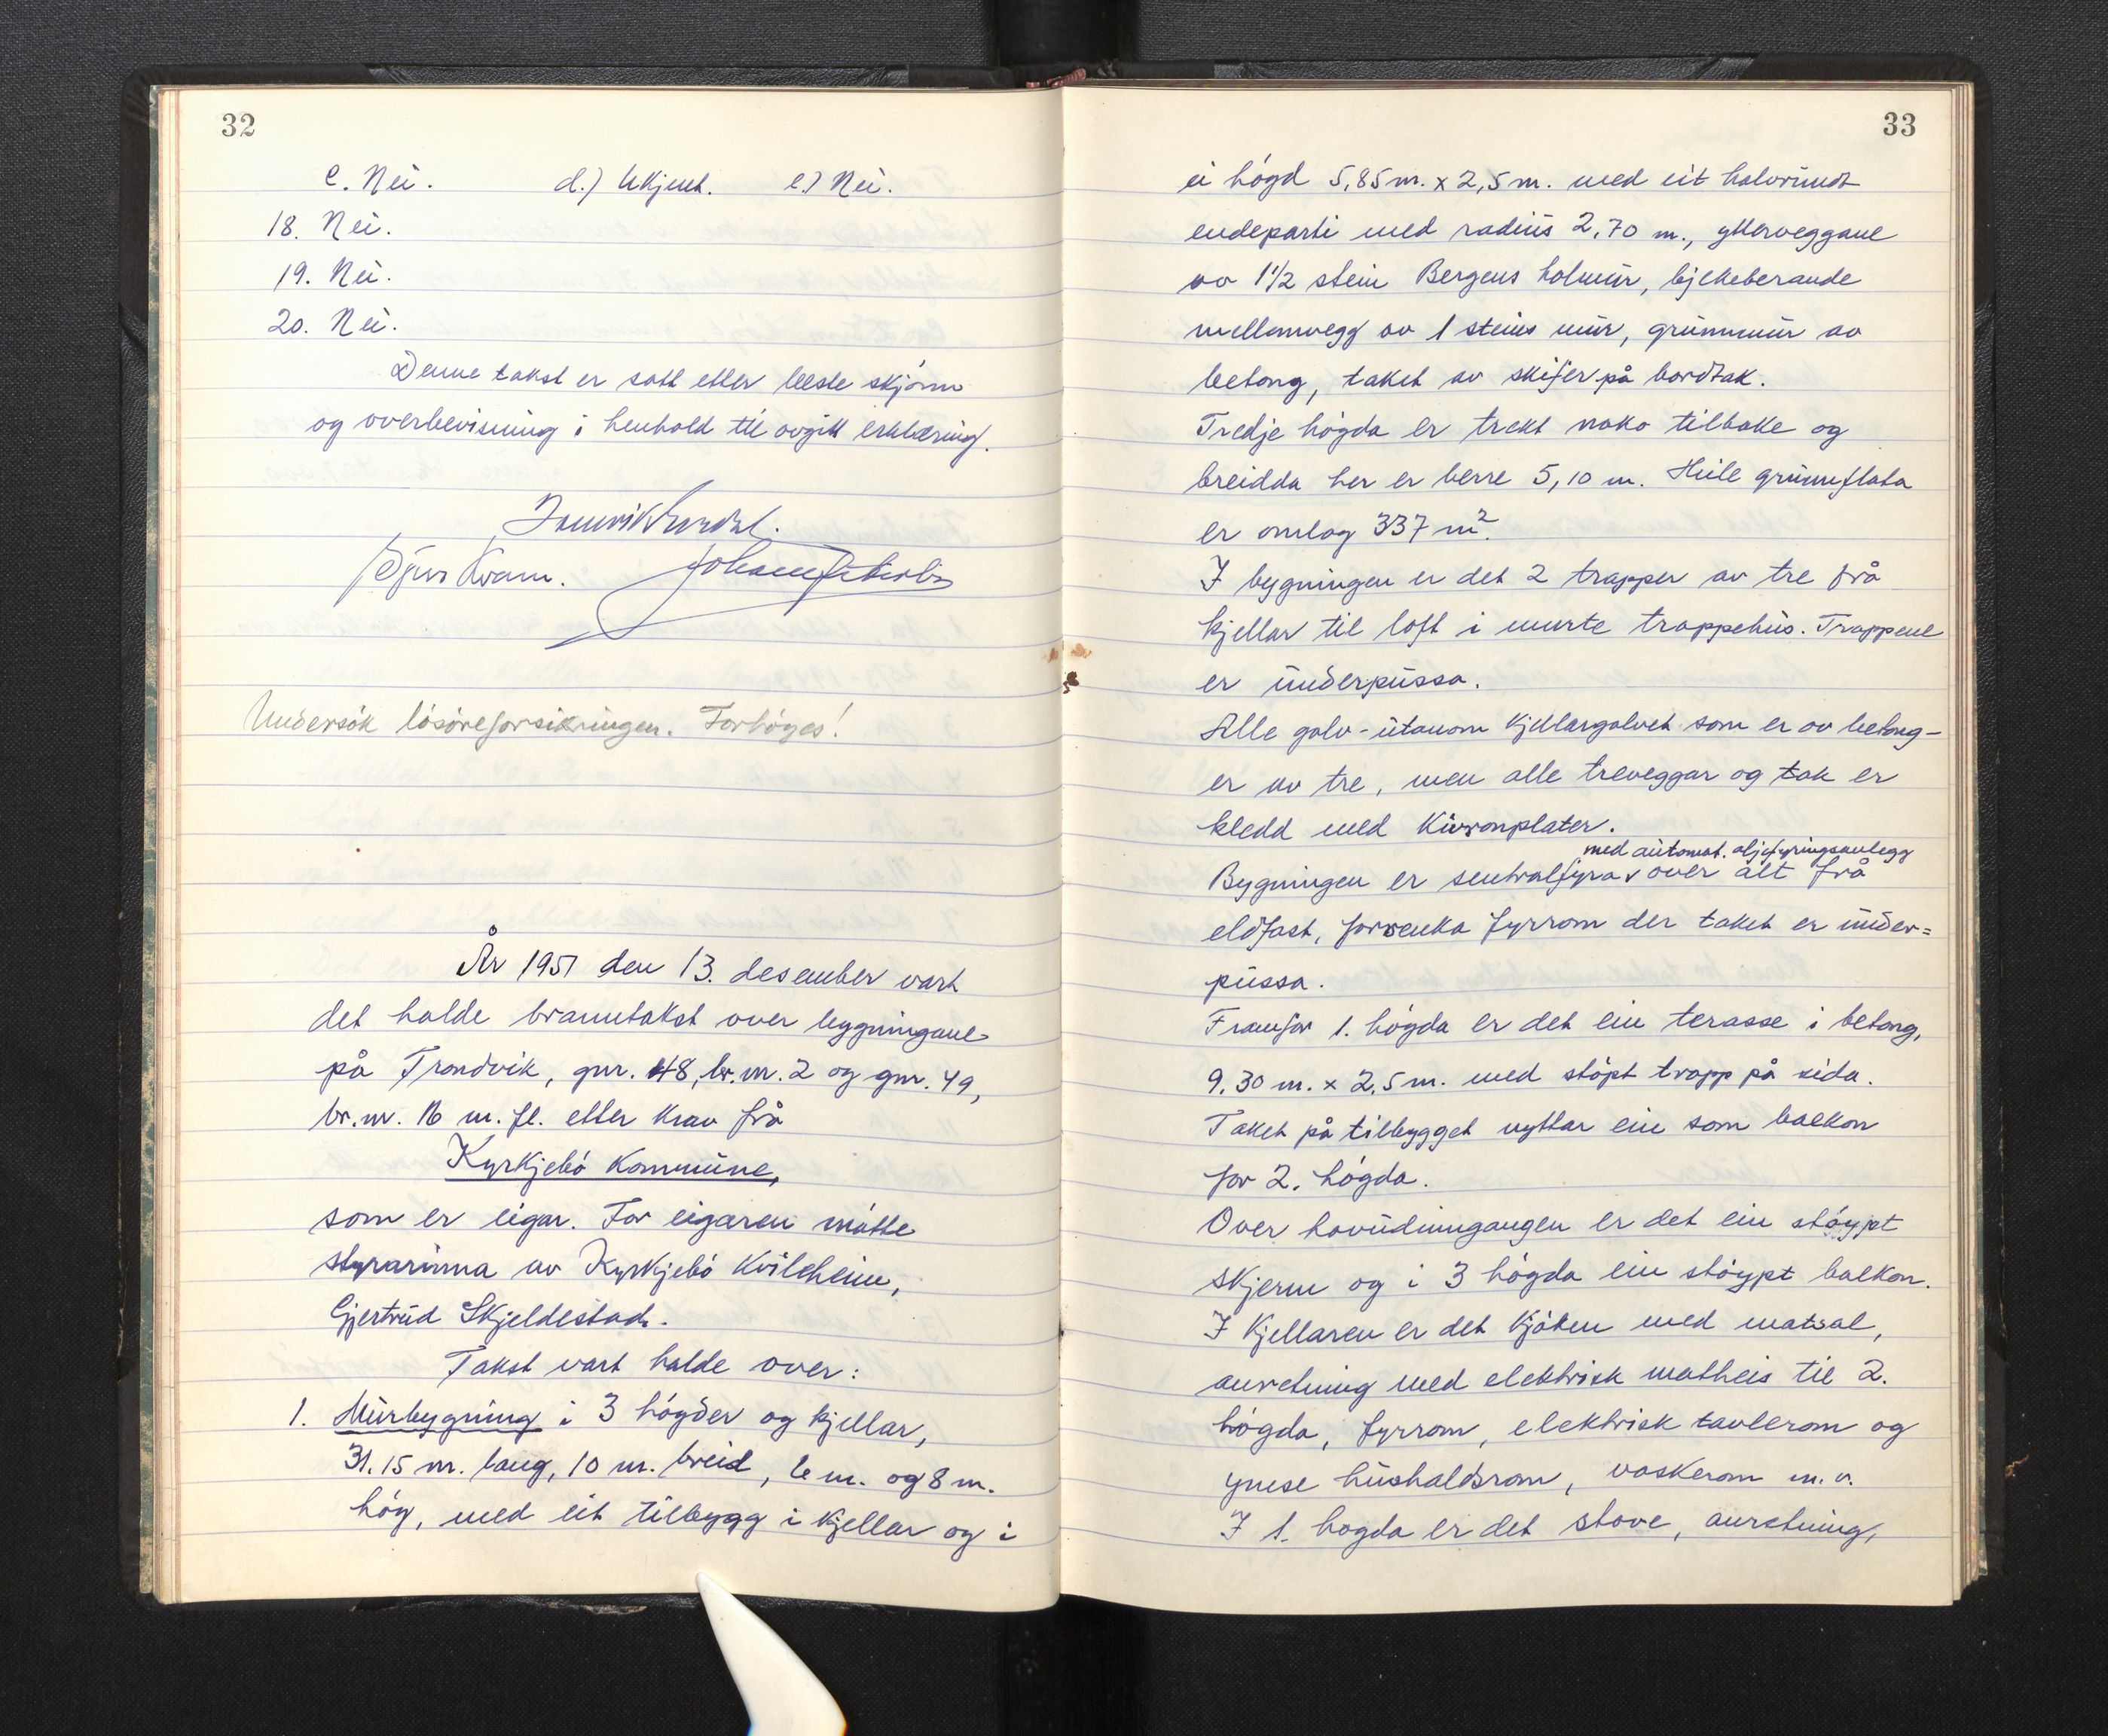 32
c. Nei. d.) Ukjent. e.) Nei.
18. Nei.
19. Nei.
20. Nei.
Denne takst er satt etter beste skjönn
og overbevisning i henhold til avgitt erklæring.
Sjur Kvam.
Undersök lösöreforsikringen. Forhöges!
År 1951 den 13. desember vart
det halde branntakst over bygningane
på Trondvik, gnr. 48, br.nr. 2 og gnr. 49,
br.nr. 16 m. fl. etter krav frå
Kyrkjebö Kommune,
som er eigar. For eigaren mötte
styrarinna av Kyrkjebö Kvileheim,
Gjertrud Skjeldestad.
Takst vart halde over:
1. Murbygning i 3 högder og kjellar,
31.15 m. lang, 10 m. breid, 6 m. og 8 m.
hög, med eit tilbygg i kjellar og i
33
ei högd 5,85 m. x 2,5 m. med eit halvrundt
endeparti med radius 2.70 m., ytterveggane
av 1 1/2 stein Bergens holmur, bjelkeberande
mellomvegg av 1 steins mur, grunnmur av
betong, taket av skifer på bordtak.
Tredje högda er trekt noko tilbake og
breidda her er berre 5,10 m. Heile grunnflata
er omlag 337 m².
I bygningen er det 2 trapper av tre frå
kjellar til loft i murte trappehus. Trappene
er underpussa.
Alle golv - utanom kjellargolvet som er av betong -
er av tre, men alle treveggar og tak er
kledd med Kivronplater.
med automat. oljefyringsanlegg
Bygningen er sentralfyra v over alt frå
eldfast, forsenka fyrrom der taket er under=
pussa.
Framfor 1. högda er det ein terasse i betong,
9.30 m. x 2.5 m. med stöpt trapp på sida.
Taket på tilbygget nyttar ein som balkon
for 2. högda.
Over hovudinngangen er det ein stöypt
skjerm og i 3 högda ein stöypt balkon.
I Kjellaren er det kjöken med matsal,
anretning med elektrisk matheis til 2.
högda, fyrrom, elektrisk tavlerom og
ymse hushaldsrom, vaskerom m.v.
I 1. hogda er det stove, anretning,